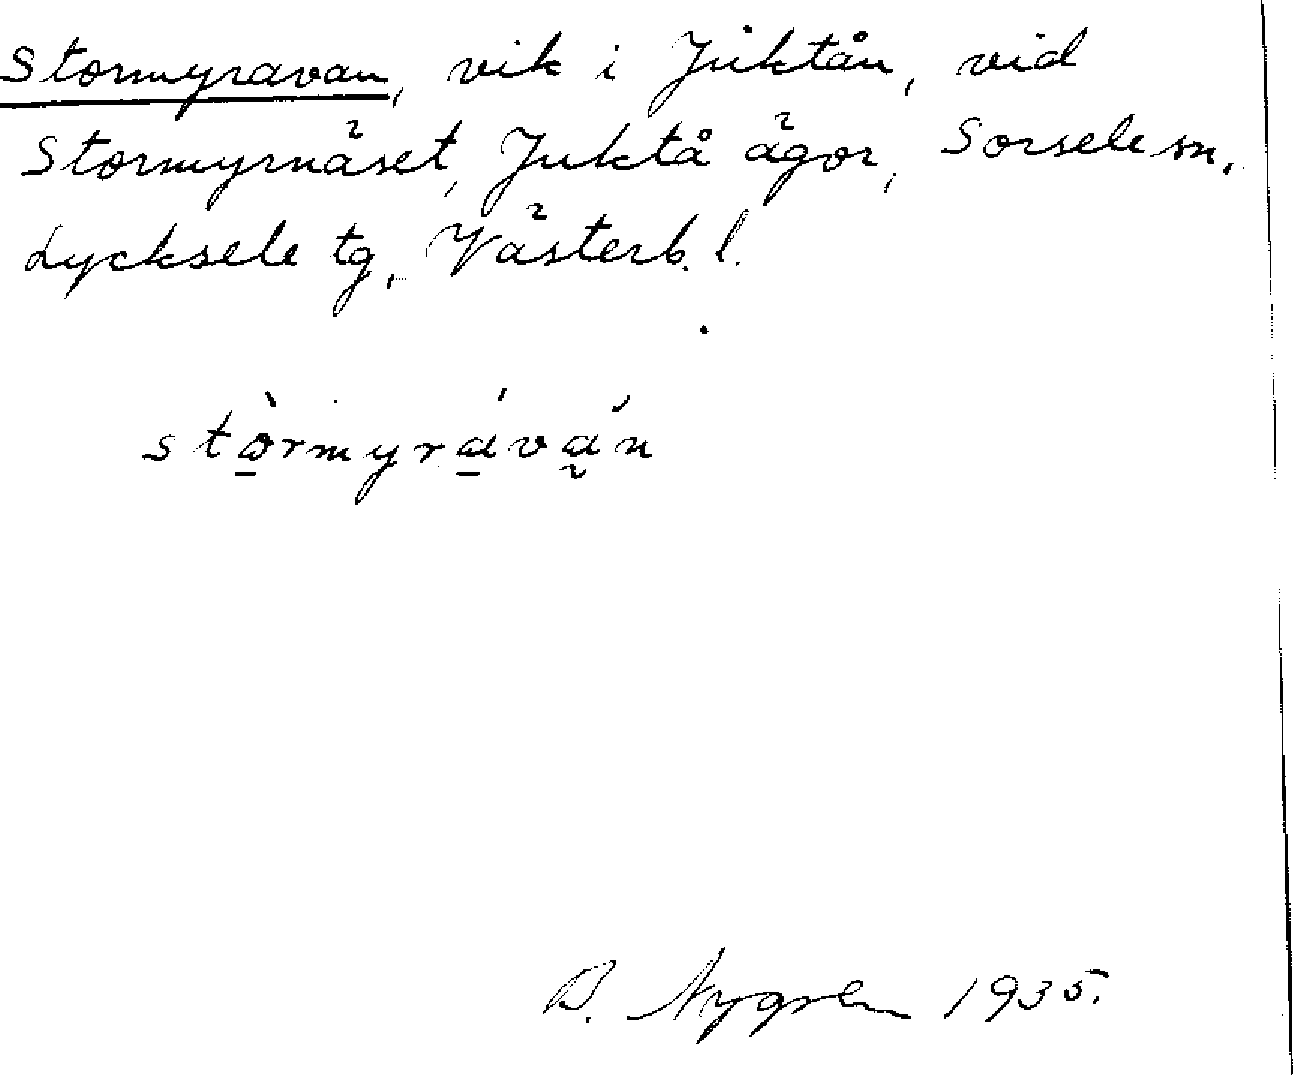 Stormyravan, vik i Juktån, vid
Stormyrnäset, Juktå ägor, Sorsele sn.
Lycksele tg, Västerb. l.
stò̲rmyrá̲vá̰n
B. Nygren 1935.